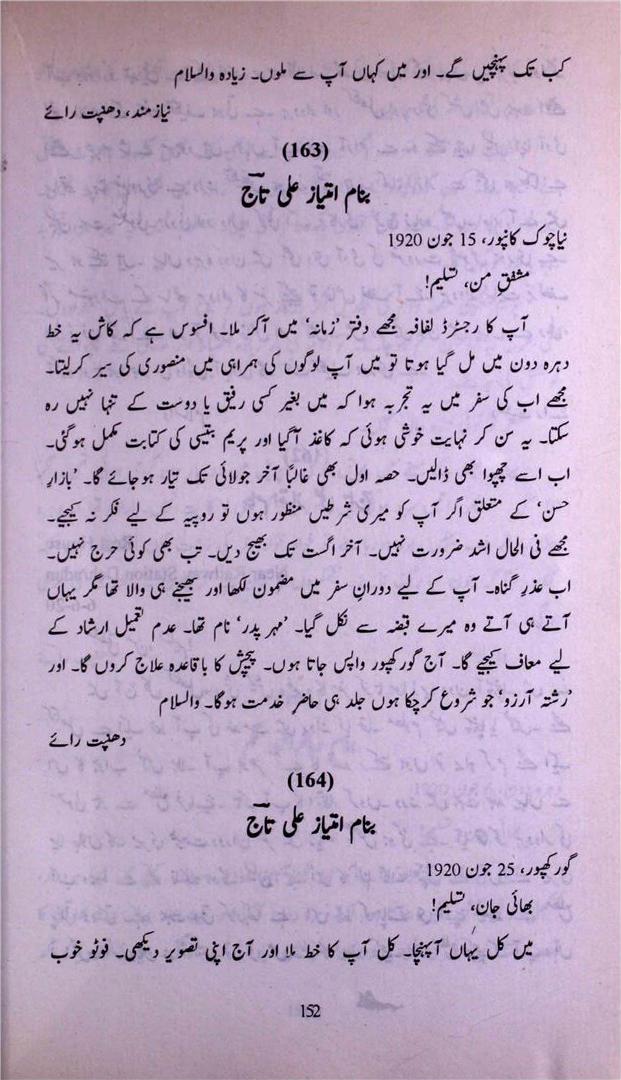 کب تک پہنچیں گے۔ اور میں کہاں آپ سے ملوں۔ زیادہ والسلام
نیازمند، دھنپت رائے
(163)
بنام امتیاز علی تاج
نیاچوک کانپور، 15 جون 1920
مشفق من، تسلیم!
آپ کا رجسٹرڈ لفافہ مجھے دفتر 'زمانہ' میں آکر ملا۔ افسوس ہے کہ کاش یہ خط
دہرہ دون میں مل گیا ہوتا تو میں آپ لوگوں کی ہمراہی میں منصوری کی سیر کرلیتا۔
مجھے اب کی سفر میں یہ تجربہ ہوا کہ میں بغیر کسی رفیق یا دوست کے تنہا نہیں رہ
سکتا۔ یہ سن کر نہایت خوشی ہوئی کہ کاغذ آگیا اور پریم بتیسی کی کتابت مکمل ہوگئی۔
اب اسے چھپوا بھی ڈالیں۔ حصہ اول بھی غالبًا آخر جولائی تک تیار ہوجائے گا۔ 'بازارِ
حسن' کے متعلق اگر آپ کو میری شرطیں منظور ہوں تو روپیہ کے لیے فکر نہ کیجیے۔
مجھے فی الحال اشد ضرورت نہیں۔ آخر اگست تک بھیج دیں۔ تب بھی کوئی حرج نہیں۔
اب عذرِ گناہ۔ آپ کے لیے دورانِ سفر میں مضمون لکھا اور بھیجنے ہی والا تھا مگر یہاں
آتے ہی آتے وہ میرے قبضہ سے نکل گیا۔ 'مہر پدر' نام تھا۔ عدم تعمیل ارشاد کے
لیے معاف کیجیے گا۔ آج گورکھپور واپس جاتا ہوں۔ پیچش کا باقاعدہ علاج کروں گا۔ اور
'رشتہ آرزو' جو شروع کرچکا ہوں جلد ہی حاضر خدمت ہوگا۔ والسلام
دھنپت رائے
(164)
بنام امتیاز علی تاج
گورکھپور، 25 جون 1920
بھائی جان، تسلیم!
میں کل یہاں آپہنچا۔ کل آپ کا خط ملا اور آج اپنی تصویر دیکھی۔ فوٹو خوب
152